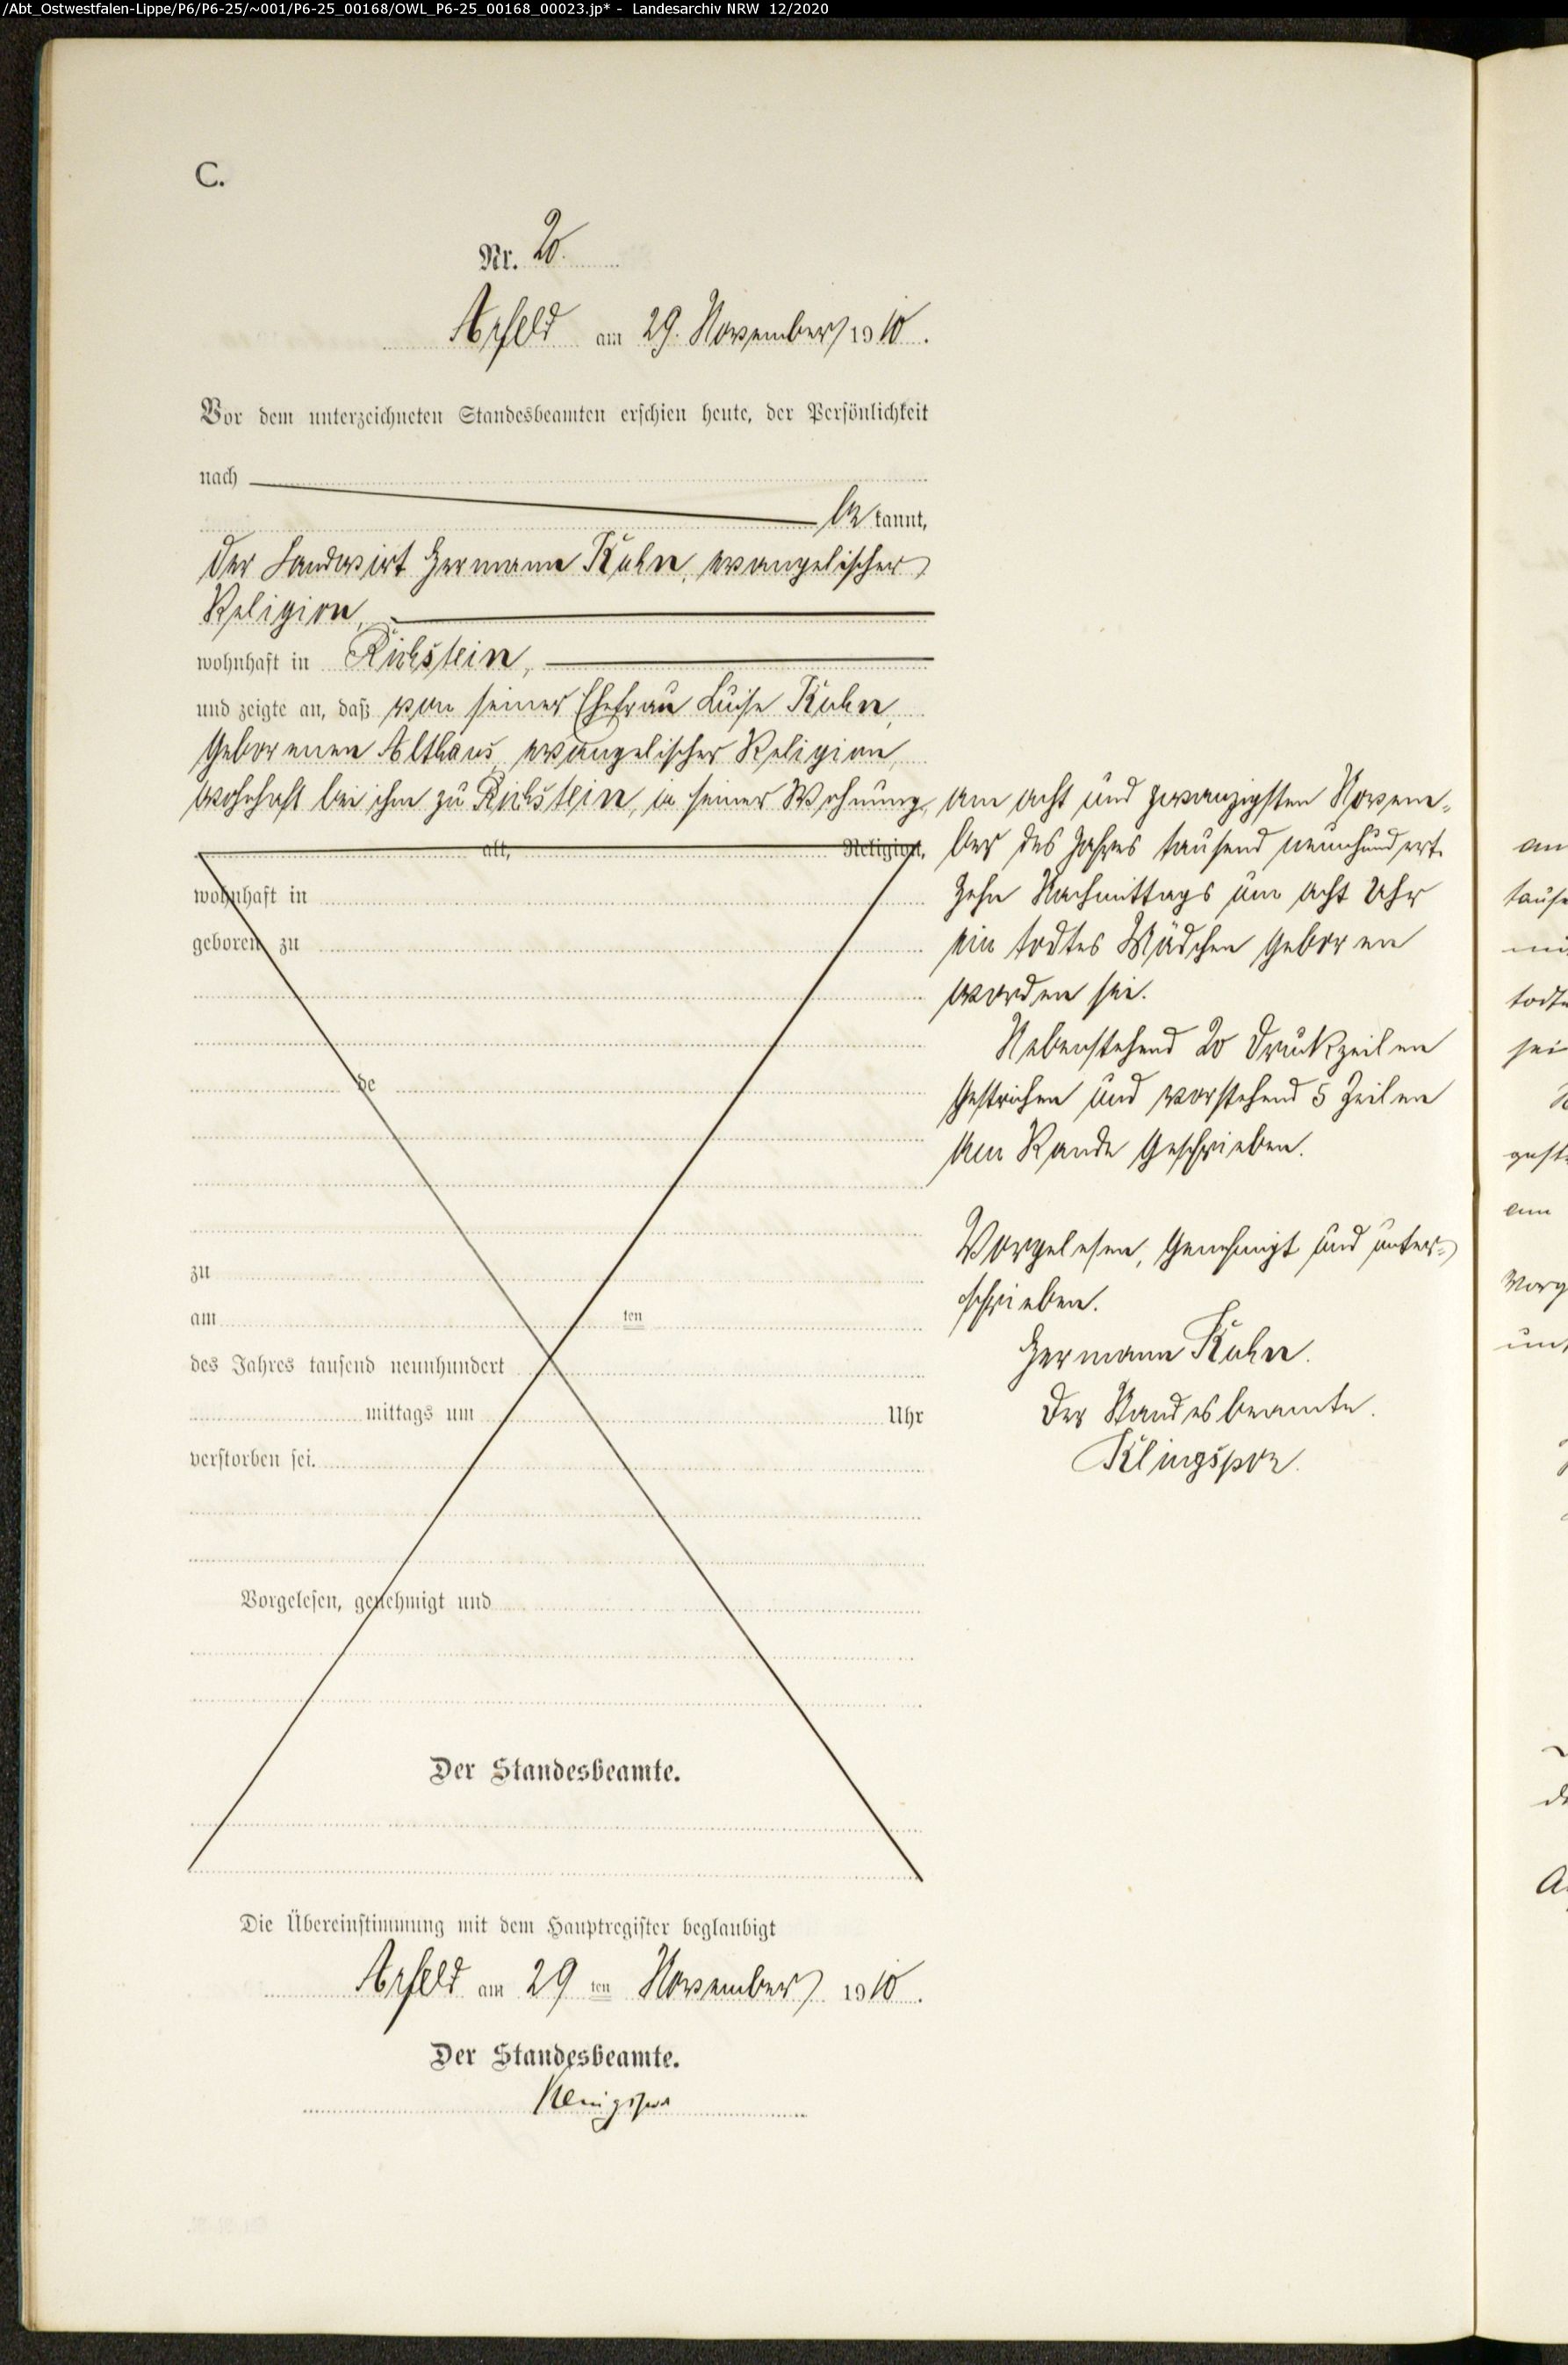 /Abt_Ostwestfalen-Lippe/P6/P6-25/~001/P6-25_00168/OWL_P6-25_00168_00023.jp* - Landesarchiv NRW 12/2020
C.
Nr. 20.
Arfeld am 29. November 1910.
Vor dem unterzeichneten Standesbeamten erschien heute, der Persönlichkeit
nach
bekannt,
der Landwirt Hermann Kuhn, evangelischer
Religion,
wohnhaft in Richstein,
und zeigte an, daß von seiner Ehefrau Luise Kuhn,
geborenen Althaus, evangelischer Religion,
wohnhaft bei ihm zu Richstein, in seiner Wohnung,
alt, Religion,
wohnhaft in
geboren zu
de
zu
am ten
des Jahres tausend neunhundert
mittags um Uhr
verstorben sei.
Vorgelesen, genehmigt und
Der Standesbeamte.
am acht und zwanzigsten Novem-
ber des Jahres tausend neunhundert
zehn Nachmittags um acht Uhr
ein todtes Mädchen geboren
worden sei.
Nebenstehend 20 Druckzeilen
gestrichen und vorstehend 5 Zeilen
am Rande geschrieben.
Vorgelesen, genehmigt und unter-
schrieben.
Hermann Kuhn.
Der Standesbeamte.
Klingspor.
Die Übereinstimmung mit dem Hauptregister beglaubigt
Arfeld am 29 ten November 1910.
Der Standesbeamte.
Klingspor